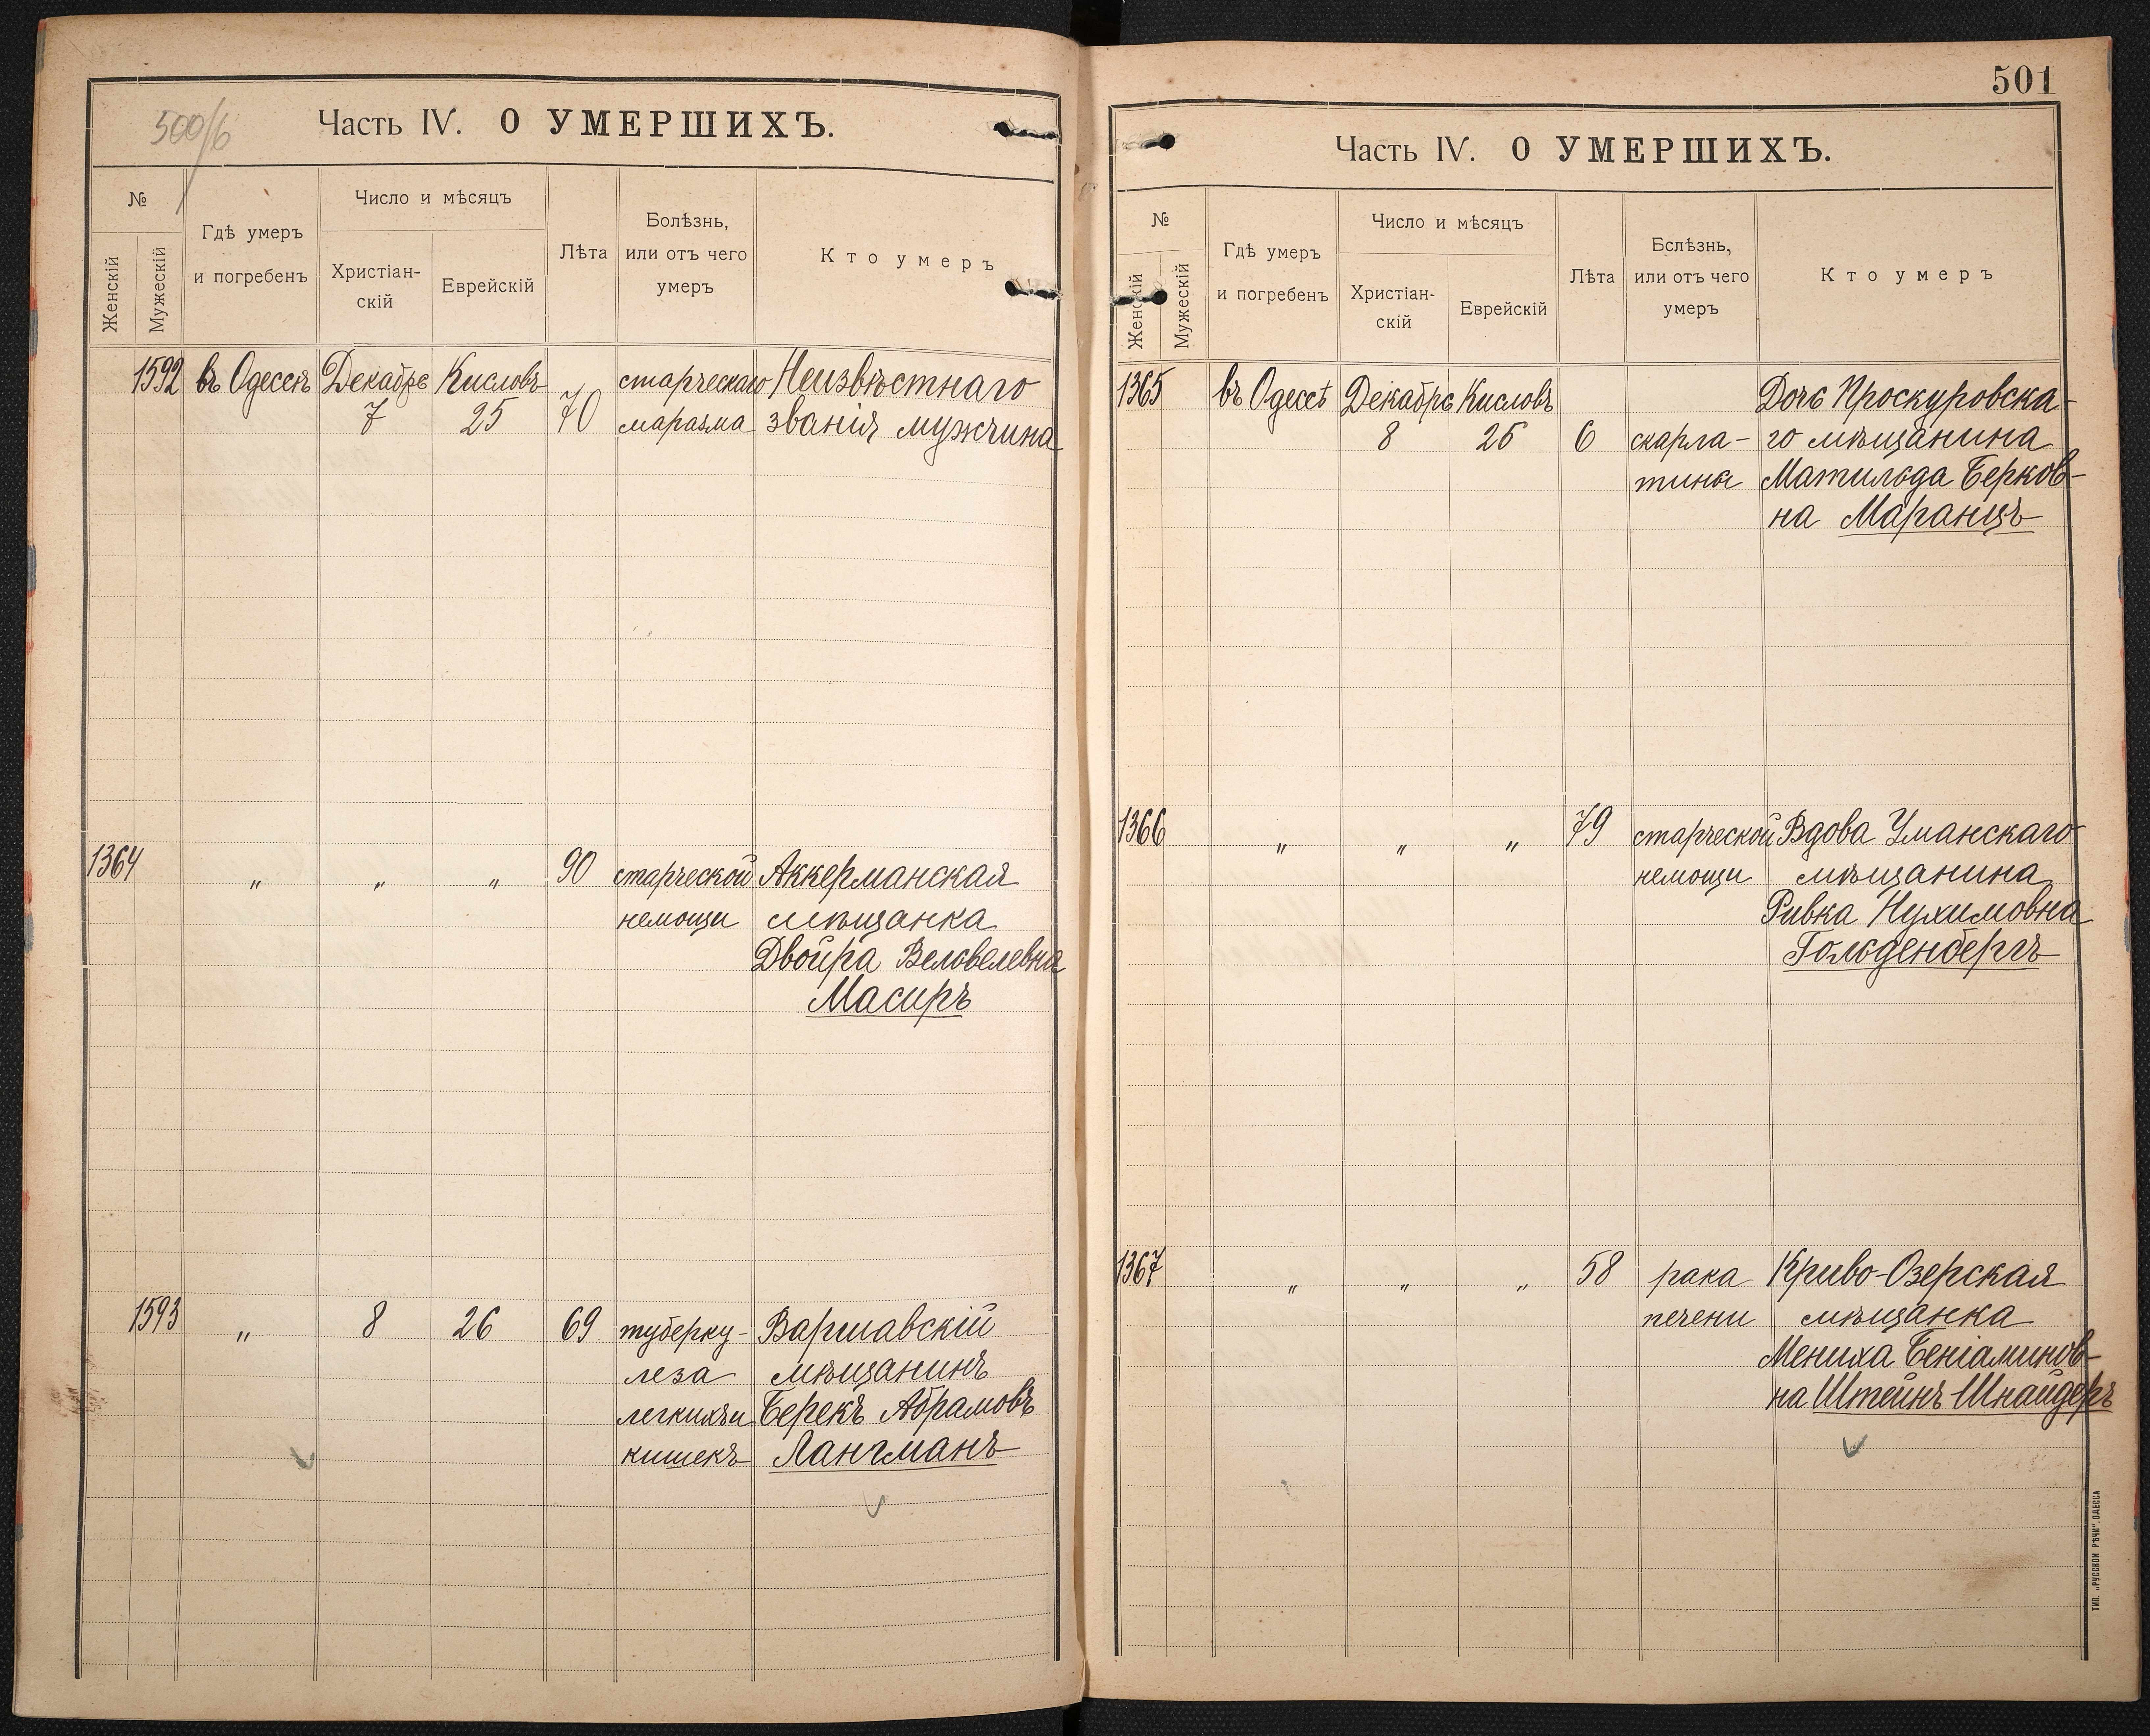 500/б
Часть IV. О УМЕРШИХЪ.
№
Женскій
Мужескій
Гдѣ умеръ
и погребенъ
Число и мѣсяцъ
Христіан-
скій
Еврейскій
Лѣта
Болѣзнь,
или отъ чего
умеръ
Кто умеръ
1592 въ Одессѣ Декабрь Кисловъ старческаго Неизвѣстнаго
7 25 70 маразма званія мужчина
1364 „ „ „ 90 старческой Аккерманская
немощи мѣщанка
Двойра Вельвелевна
Масиръ
1593 „ 8 26 69 туберку- Варшавскій
леза мѣщанинъ
легкихъ и Берекъ Абрамовъ
кишекъ Лангманъ
501
Часть IV. О УМЕРШИХЪ.
№
Женскій
Мужескій
Гдѣ умеръ
и погребенъ
Число и мѣсяцъ
Христіан-
скій
Еврейскій
Лѣта
Бслѣзнь,
или отъ чего
умеръ
Кто умеръ
1365 въ Одессѣ Декабрь Кисловъ Дочь Проскуровска-
8 26 6 скарла- го мѣщанина
тины Матильда Берков-
на Маранцъ
1366 „ „ „ 79 старческой Вдова Уманскаго
немощи мѣщанина
Ривка Нухимовна
Гольденбергъ
1367 „ „ „ 58 рака Криво-Озерская
печени мѣщанка
Мениха Беніаминов-
на Штейнъ Шнайдеръ
ТИП. „РУССКОЙ РѢЧИ“. ОДЕССА